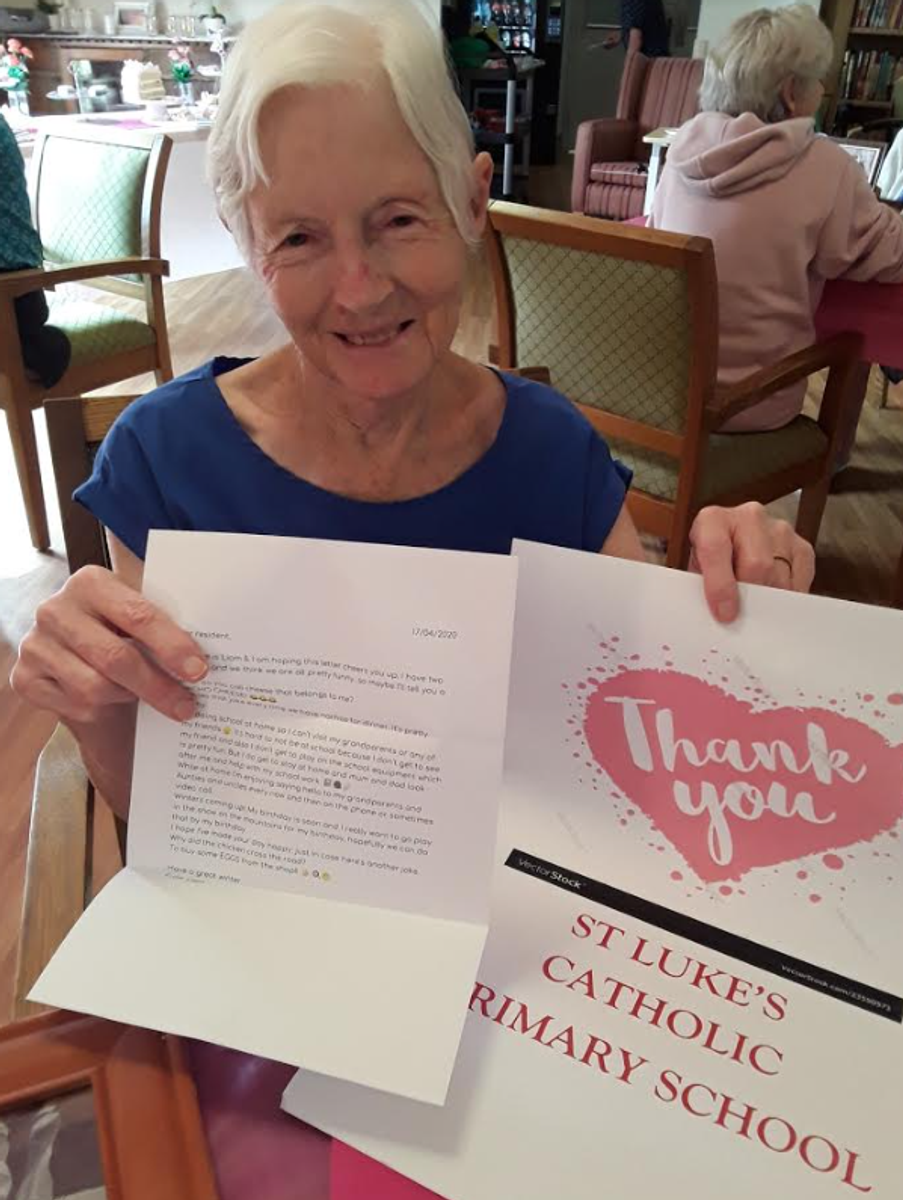 resident,
17/04/2020
Liam & I am hoping this letter cheers you up, I have two
and we think we are all pretty funny, so maybe I'll tell you a
cheese that belongs to me?
we have nachos for dinner. It's pretty
doing school at home so I can't visit my grandparents or any of
my friends 🙁 It's hard to not be at school because I don't get to see
my friend and also I don't get to play on the school equipment which
is pretty fun. But I do get to stay at home and mum and dad look
after me and help with my school work.
While at home I'm enjoying saying hello to my grandparents and
Aunties and uncles every now and then on the phone or sometimes
video call.
Winters coming up! My birthday is soon and I really want to go play
in the snow on the mountains for my birthday, hopefully we can do
that by my birthday.
I hope I've made your day happy, just in case here's another joke.
Why did the chicken cross the road?
To buy some EGGS from the shop!!
Have a great winter
Thank
you
VectorStock
VectorStock.com/23590973
ST LUKE'S
CATHOLIC
RIMARY SCHOOL